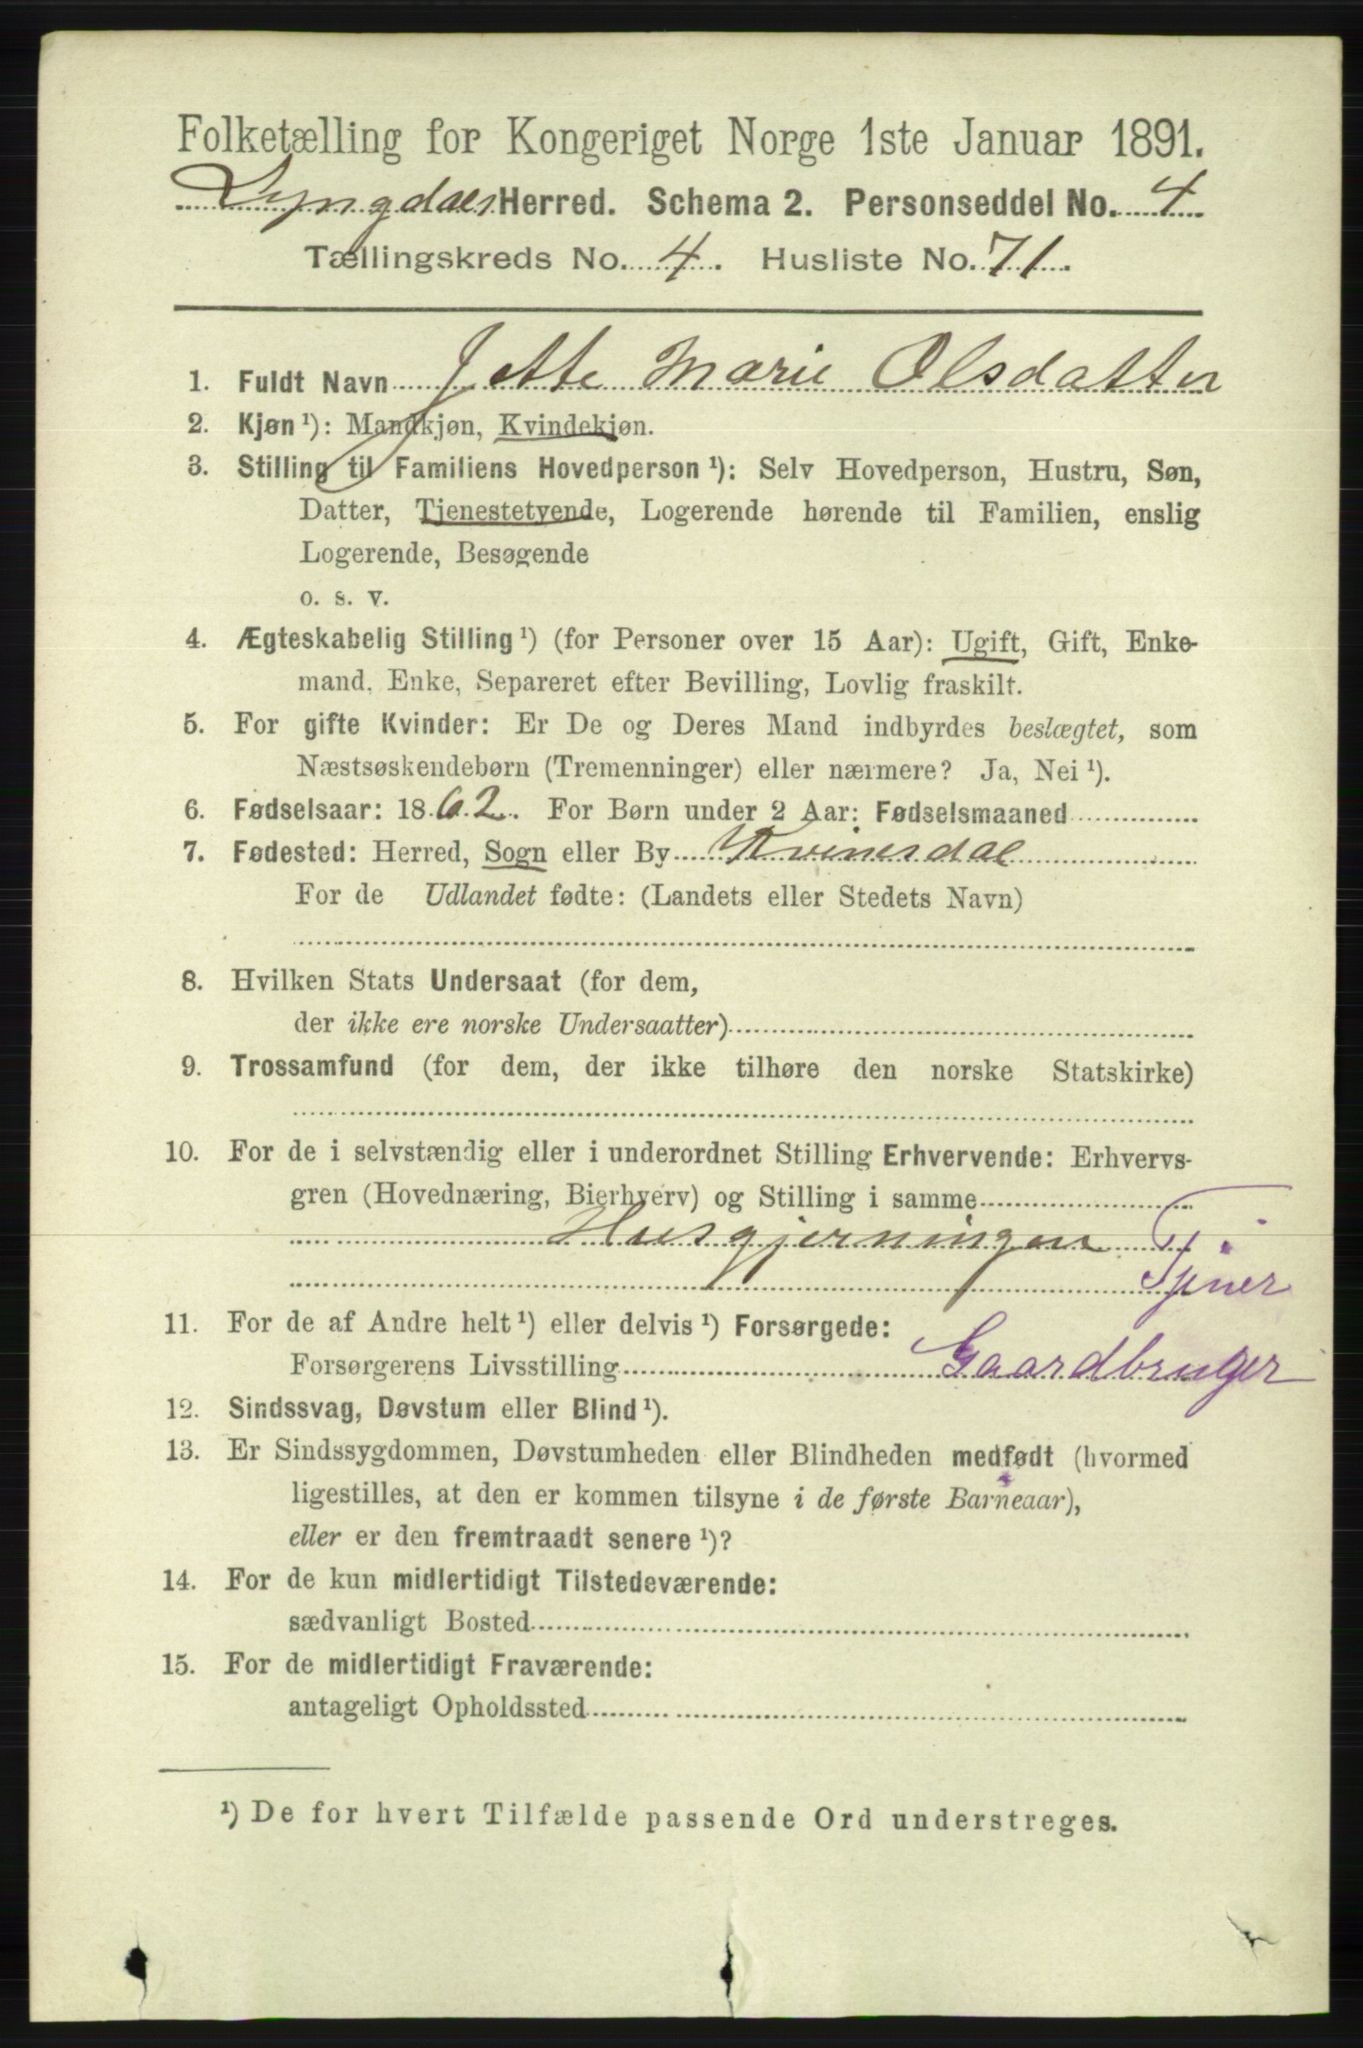 Folketælling for Kongeriget Norge 1ste Januar 1891.
Lyngdals Herred. Schema 2. Personseddel No. 4
Tællingskreds No. 4. Husliste No. 71.
1. Fuldt Navn Jette Marie Olsdatter
2. Kjøn ¹): Mandkjøn, Kvindekjøn.
3. Stilling til Familiens Hovedperson ¹): Selv Hovedperson, Hustru, Søn,
Datter, Tjenestetyende, Logerende hørende til Familien, enslig
Logerende, Besøgende
o. s. v.
4. Ægteskabelig Stilling ¹) (for Personer over 15 Aar): Ugift, Gift, Enke-
mand, Enke, Separeret efter Bevilling, Lovlig fraskilt.
5. For gifte Kvinder: Er De og Deres Mand indbyrdes beslægtet, som
Næstsøskendebørn (Tremenninger) eller nærmere? Ja, Nei ¹).
6. Fødselsaar: 1862. For Børn under 2 Aar: Fødselsmaaned
7. Fødested: Herred, Sogn eller By Kvinesdal
For de Udlandet fødte: (Landets eller Stedets Navn)
8. Hvilken Stats Undersaat (for dem,
der ikke ere norske Undersaatter)
9. Trossamfund (for dem, der ikke tilhøre den norske Statskirke)
10. For de i selvstændig eller i underordnet Stilling Erhvervende: Erhvervs-
gren (Hovednæring, Bierhverv) og Stilling i samme
Husgjerningen
Tjener
11. For de af Andre helt ¹) eller delvis ¹) Forsørgede:
Forsørgerens Livsstilling Gaardbruger
12. Sindssvag, Døvstum eller Blind ¹).
13. Er Sindssygdommen, Døvstumheden eller Blindheden medfødt (hvormed
ligestilles, at den er kommen tilsyne i de første Barneaar),
eller er den fremtraadt senere ¹)?
14. For de kun midlertidigt Tilstedeværende:
sædvanligt Bosted
15. For de midlertidigt Fraværende:
antageligt Opholdssted
¹) De for hvert Tilfælde passende Ord understreges.